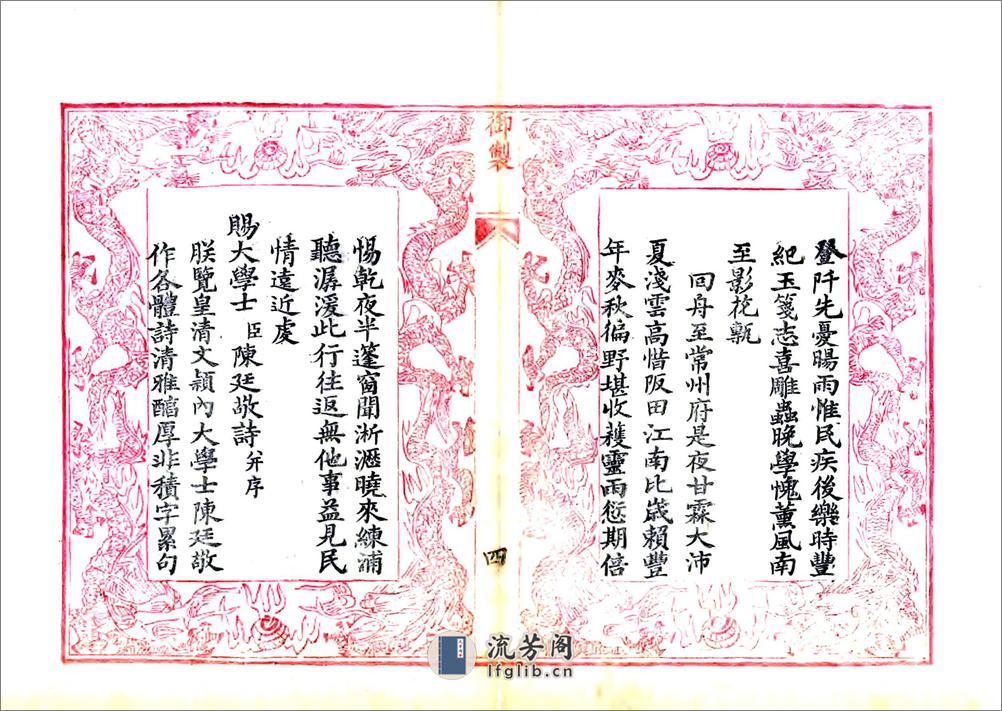 蠶阡先憂暘雨惟民疾後樂時豐
紀玉箋志喜雕蟲晚學愧薰風南
至影花甎
回舟至常州府是夜甘霖大沛
夏淺雲高惜阪田江南比歲賴豐
年麥秋徧野堪收穫靈雨愆期倍
御製
四
惕乾夜半篷窗聞淅瀝曉來練浦
聽潺湲此行往返無他事益見民
情遠近處
賜大學士臣陳廷敬詩并序
朕覽皇清文穎內大學士陳廷敬
作各體詩清雅醕厚非積字累句
流芳阁
lfglib.cn